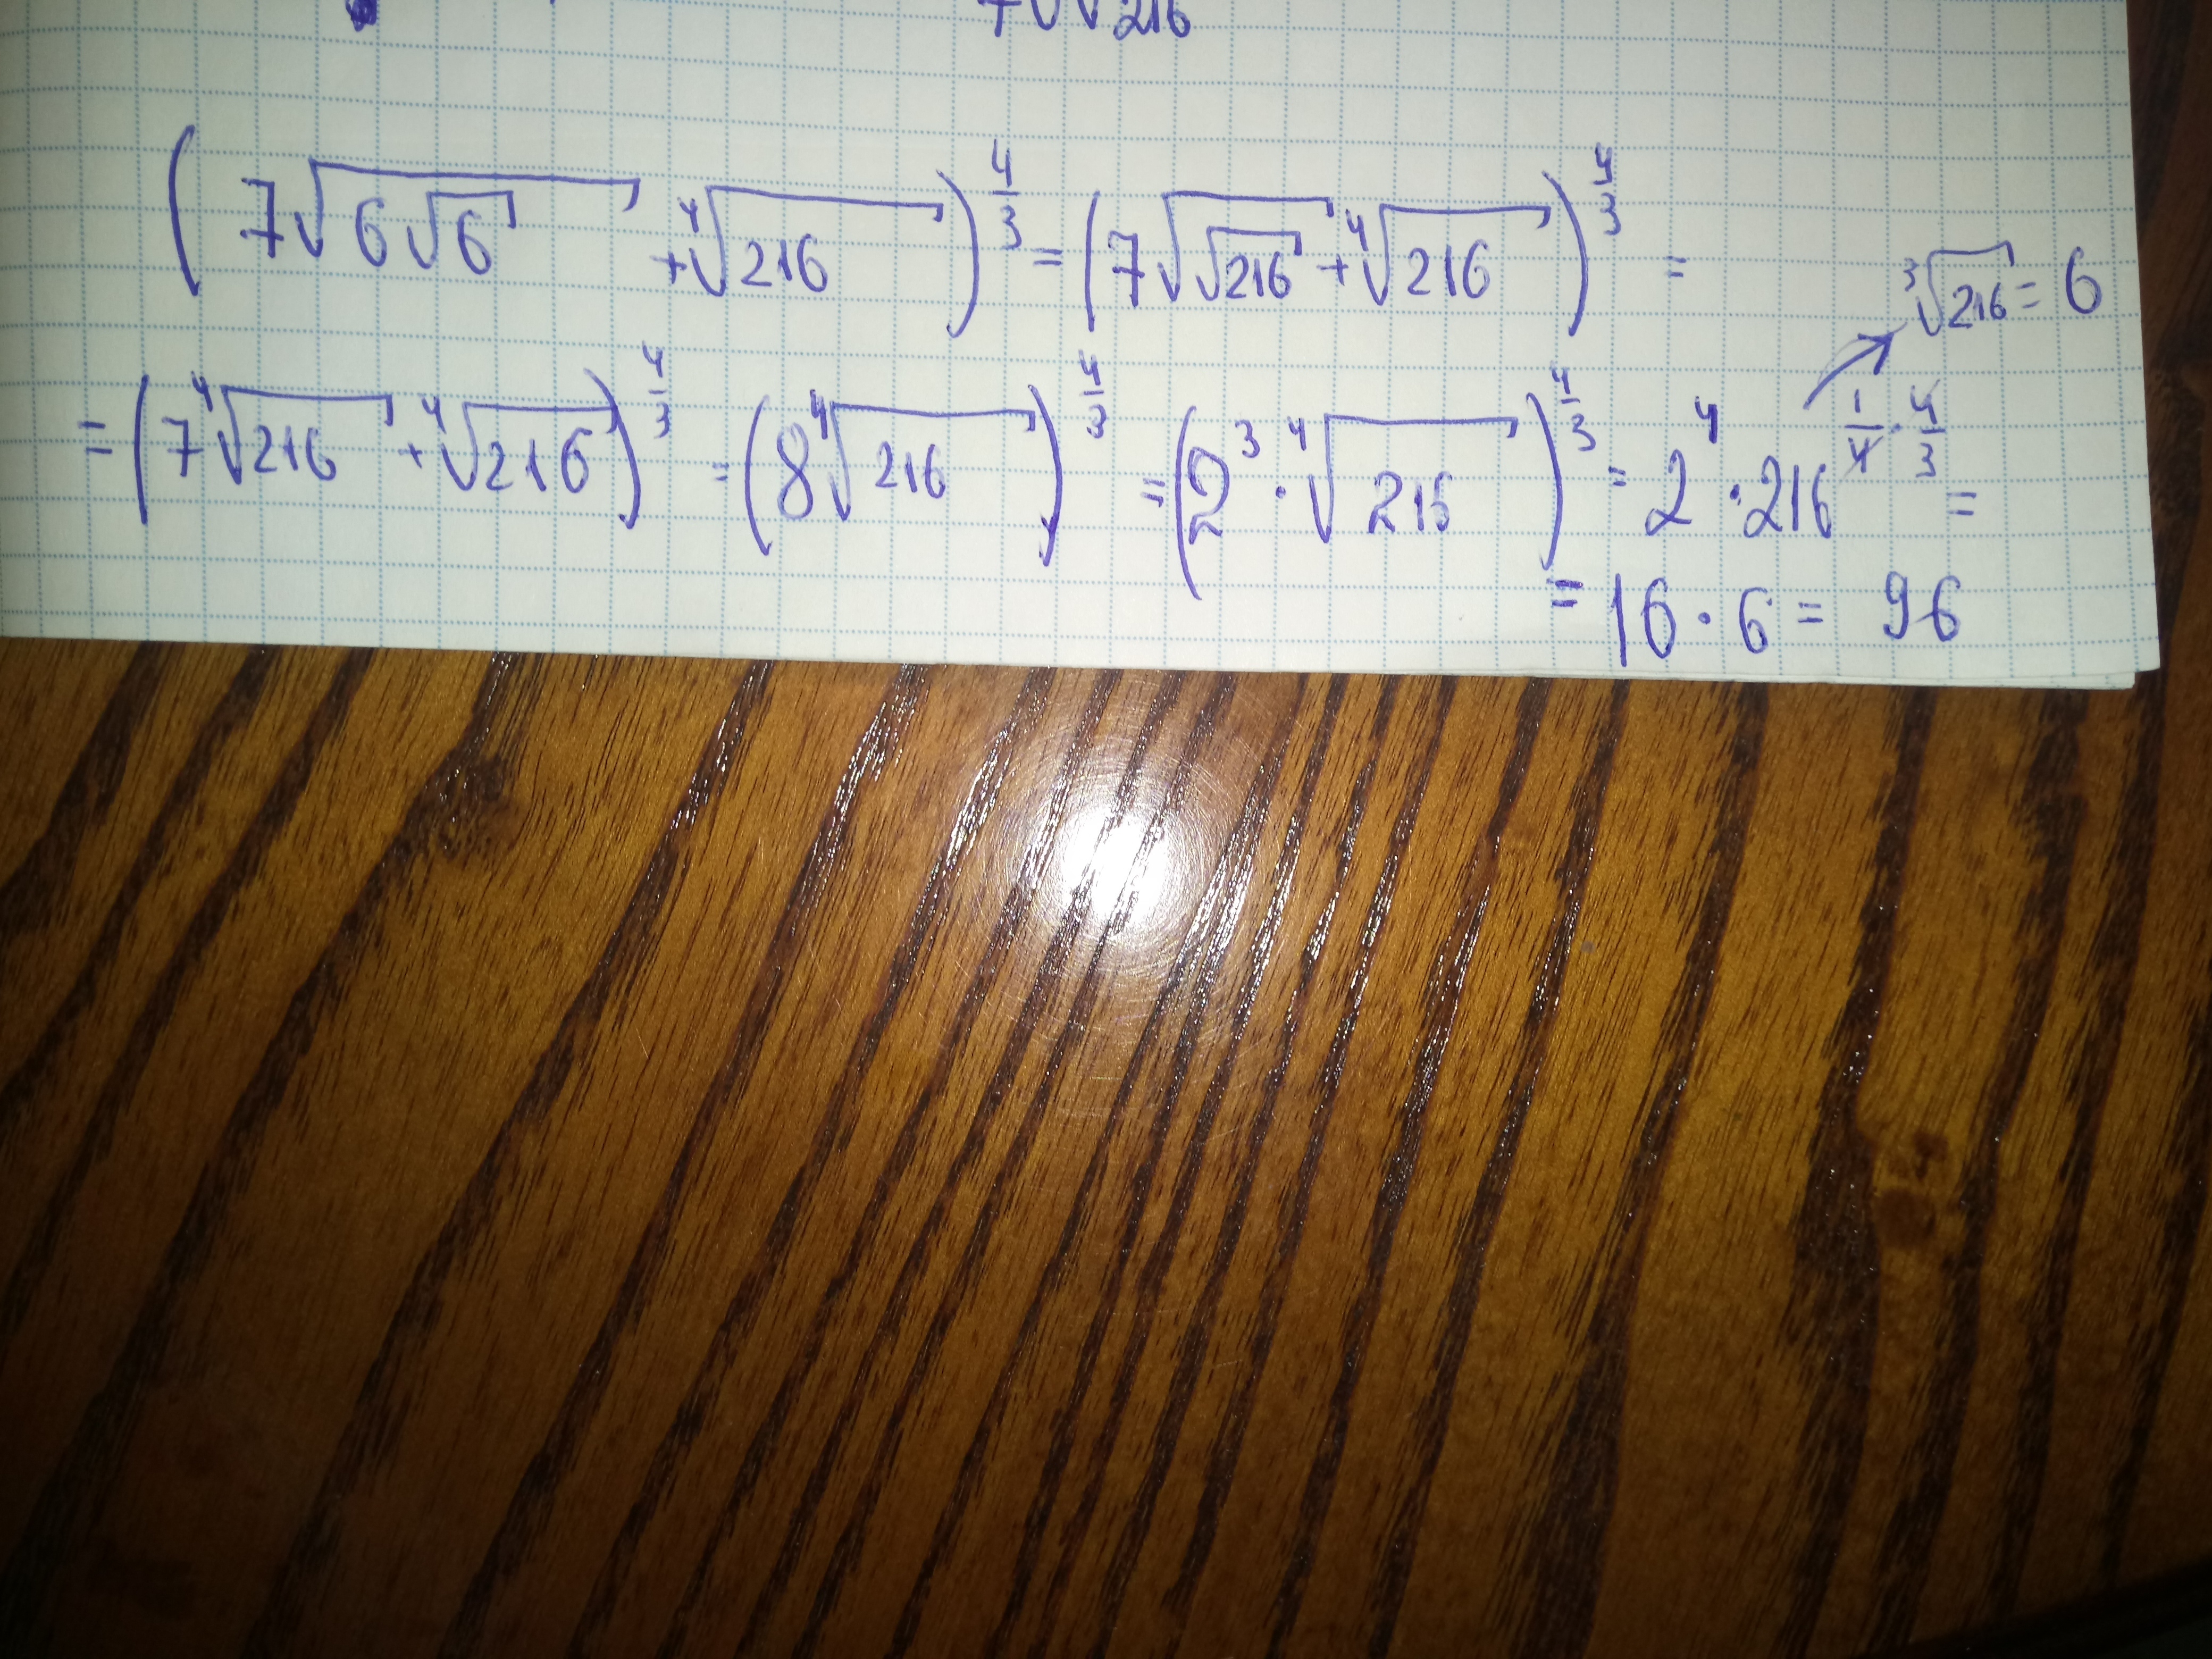 +√√216
(7√(6√6) + ⁴√216)^(4/3) = (7√√216 + ⁴√216)^(4/3) =
³√216 = 6
= (7⁴√216 + ⁴√216)^(4/3) = (8⁴√216)^(4/3) = (2³ · ⁴√216)^(4/3) = 2⁴ · 216^(1/4 · 4/3) =
= 16 · 6 = 96